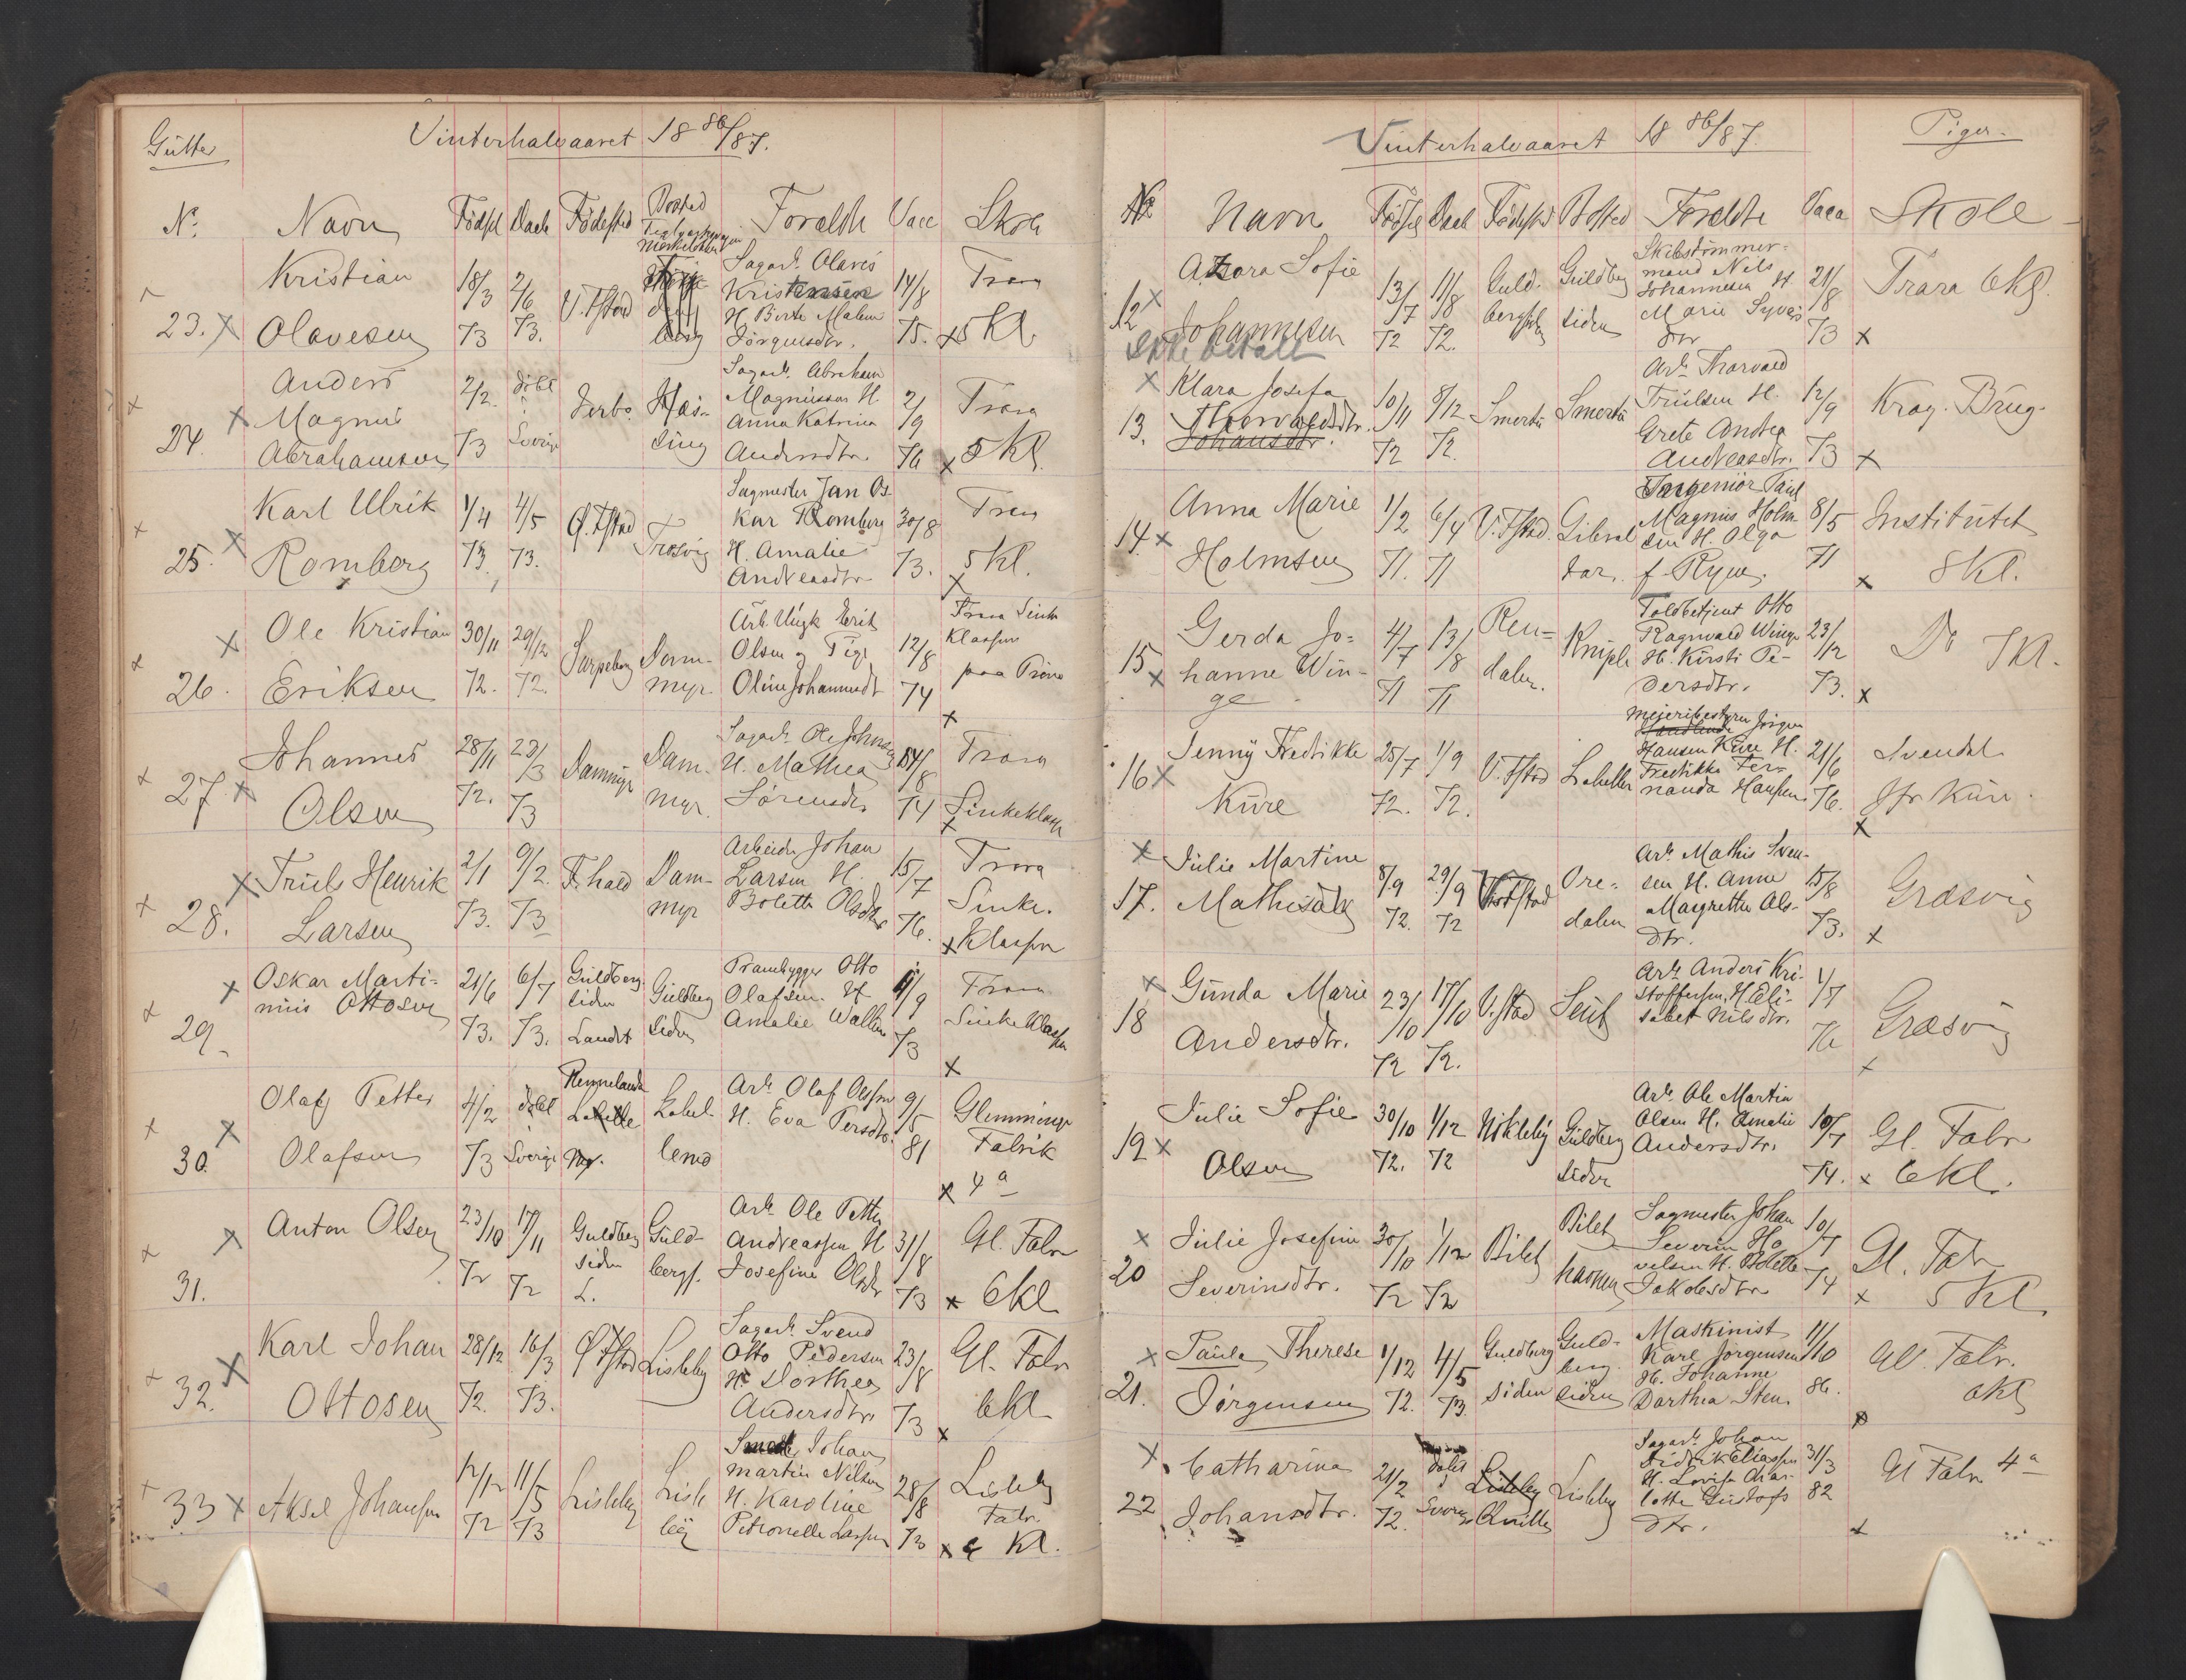 Gutter
Vinterhalvaaret 18 86/87.
No. Navn Födsel Daab Födested Bosted Foreldre Vacc Skole
23. Kristian Olavesen 18/3 73 2/6 73. V. Fstad Sagarb. Olaves Kristensen H. Berte Malene Jörgensdtr. 14/8 75. Trara 5 Kl.
24. Anders Magnus Abrahamsen 2/2. 73 döbt i Sverige Sagarb. Abraham Magnussen H. Anna Katrina Andersdtr. 2/9 76 Trara 5 Kl.
25. Karl Ulrik Romberg 1/4 73. 4/5 73. Ø. Fstad Trosvig Sagmester Jan Oskar Romberg H. Amalie Andreasdtr. 30/8 73. Trara 5 Kl.
26. Ole Kristian Eriksen 30/11 72. 29/12 72. Sarpsborg Dammyr. Erik Olsen og Pige Oline Johannesdt 12/8 74 Trara Sinke Klassen paa Pröve
27. Johannes Olsen 28/11 72. 23/3 73 Dammyr Dammyr. Sagarb. Ole Johnsen H. Mathea Sörensdr. 14/8 74 Trara Sinkeklasse
28. Truls Henrik Larsen 2/1 73. 9/2. 73 F.hald Dammyr Arbeider Johan Larsen H. Bolette Olsdtr 15/7 76. Trara Sinke. Klassen
29. Oskar Martinius Ottosen 21/6 73. 6/7 73. Guldberg siden Landet Guldberg siden Prambygger Otto Olafsen H Amalie Wallin 9/9 73 Trara Sinke Klassen
30. Olaf Petter Olafsen 4/2 73 döbt i Sverige Labellemo Arb. Olaf Olsen H. Eva Persdtr. 9/5 81 Glemminge Fabrik 4a
31. Anton Olsen 23/10 72 17/11 72 Guldberg siden L. Guldbergs. Arb. Ole Petter Andreassen H Josefine Olsdtr 31/8 73 Gl. Fabr 6kl
32. Karl Johan Ottosen 28/12 72. 16/3 73. Ø Fstad Lisleby Sagarb. Svend Otto Pedersen H. Dorthea Andersdtr. 23/8 73 Gl. Fabr 6kl
33 Aksel Johansen 12/12 72 11/5 73 Lisleby Lisleby Johan Martin Nilsen H. Karoline Petronelle Larsen 28/8 73 Lisleby Fabr. Kl.
Vinterhalvaaret 18 86/87.
Piger.
No Navn Födsel Daab Födested Bosted Foreldre Vacc Skole
12 Sofie Johannesen 13/7 72 11/8 72. Guldbergsiden Guldberg siden Skibstömmermand Nils Johannesen H Marie Syversdtr 21/8 73 Trara 6kl.
Ikke betalt
13. Klara Josefa Thorvaldsdtr. Johansdtr. 10/11 72 8/12 72. Smertu Smertu Arb. Thorvald Trulsen H. Grete Andrea Andreasdtr. 12/9 73 Krag. Brug.
14. Anna Marie Holmsen 1/2 71. 6/4 71 V. Fstad. Gibraltar. Ingeniör Paul Magnus Holmsen H. Olga f. Ryen. 8/5 71 Institutet 8 Kl.
15 Gerda Johanne Winge 4/7 71 13/8 71 Rendalen. Kniple Toldbetjent Otto Ragnvald Winge H. Kirsti Pedersdtr. 23/12 73. Do 7Kl.
16 Jenny Fredrikke Kure 25/7 72. 1/9 72. V. Fstad Labellen Meieribestyrer Jörgen Hansen Kure H. Fredrikke Fernanda Hansen. 21/6 76. Svendsb. Jfr Kure.
17. Julie Martine Mathisdtr 8/9 72. 29/9 72 V. Fstad Oredalen Arb. Mathis Svensen H. Anne Margrethe Olsdtr. 15/8 73. Græsvig
18 Gunda Marie Andersdtr. 23/10 72 17/10 72. V. Fstad Seut Arb. Anders Kristoffersen, H. Elisabet Nilsdtr. 1/7 76 Græsvig
19 Julie Sofie Olsen 30/10 72. 1/12 72 Nökleby Guldberg siden Arb. Ole Martin Olsen H. Amalie Andersdtr. 10/7 74. Gl. Fabr 6kl.
20 Julie Josefine Severinsdtr. 30/10 72 1/12 72 Bilet Bilet havnen Sagmester Johan Severin H. Bolette Jakobsdtr 10/7 74 Gl. Fabr 5 Kl.
21. Paula Therese Jörgensen 1/12 72. 4/5 73. Guldberg siden Guldberg siden Maskinist Karl Jörgensen H. Johanne Dorthea Sten. 11/10 86. Gl. Fabr. 6kl
22 Catharina Johansdtr. 21/2 72. döbt i Sverige Lisleby Lisleby Sagarb. Johan Didrik Eliassen H. Lovise Charlotte Gustafsdtr. 31/3 82 Gl Fabr 4a